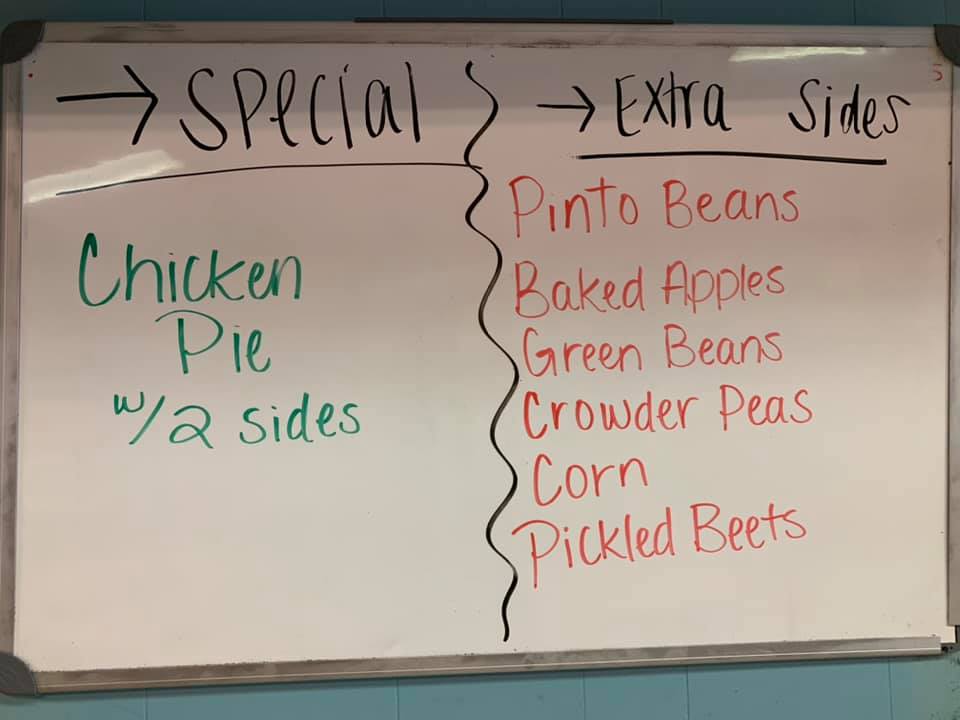 → Special
Chicken
Pie
w/2 sides
→ Extra Sides
Pinto Beans
Baked Apples
Green Beans
Crowder Peas
Corn
Pickled Beets